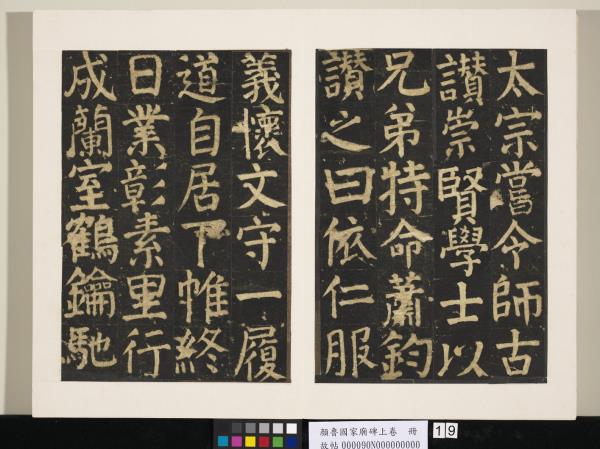 太宗嘗令師古
讃崇賢學士以
兄弟特命蕭鈞
讃之曰依仁服
義懷文守一履
道自居下帷終
日業彰素里行
成蘭室鶴鑰馳
顏魯國家廟碑上卷 冊
故帖000090N000000000
19